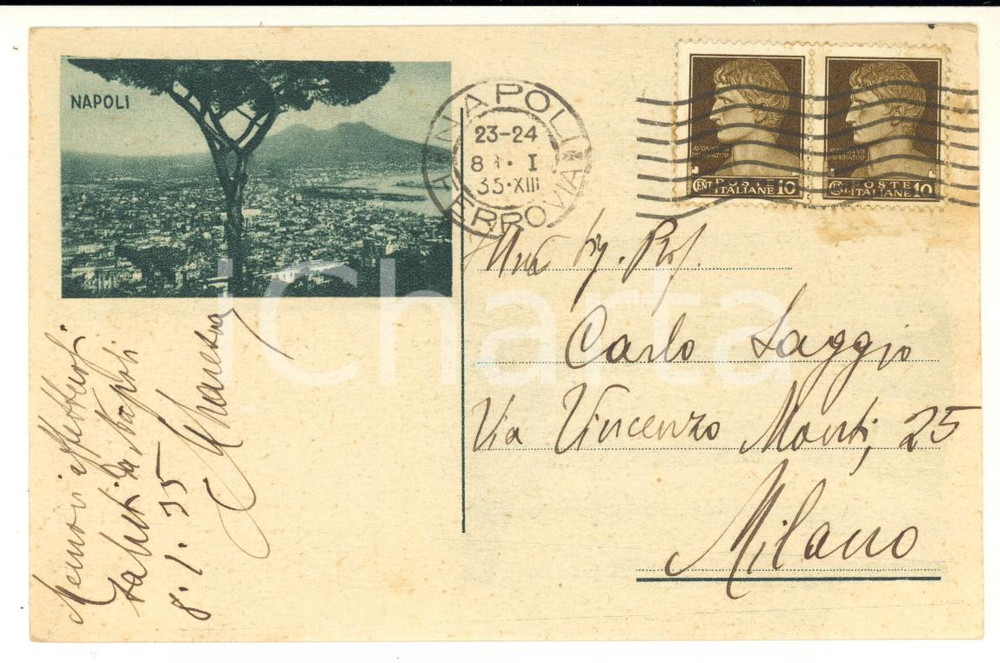 NAPOLI
NAPOLI
23-24
8 I
35·XIII
FERROVIA
AUGUSTO
IMPERATOR
CENT. POSTE ITALIANE 10
IMPERATOR
CENT. POSTE ITALIANE 10
Sig. Prof.
Carlo Saggio
Via Vincenzo Monti, 25
Milano
Memori affettuosi
saluti da Napoli
8. 1. 35
iCharta